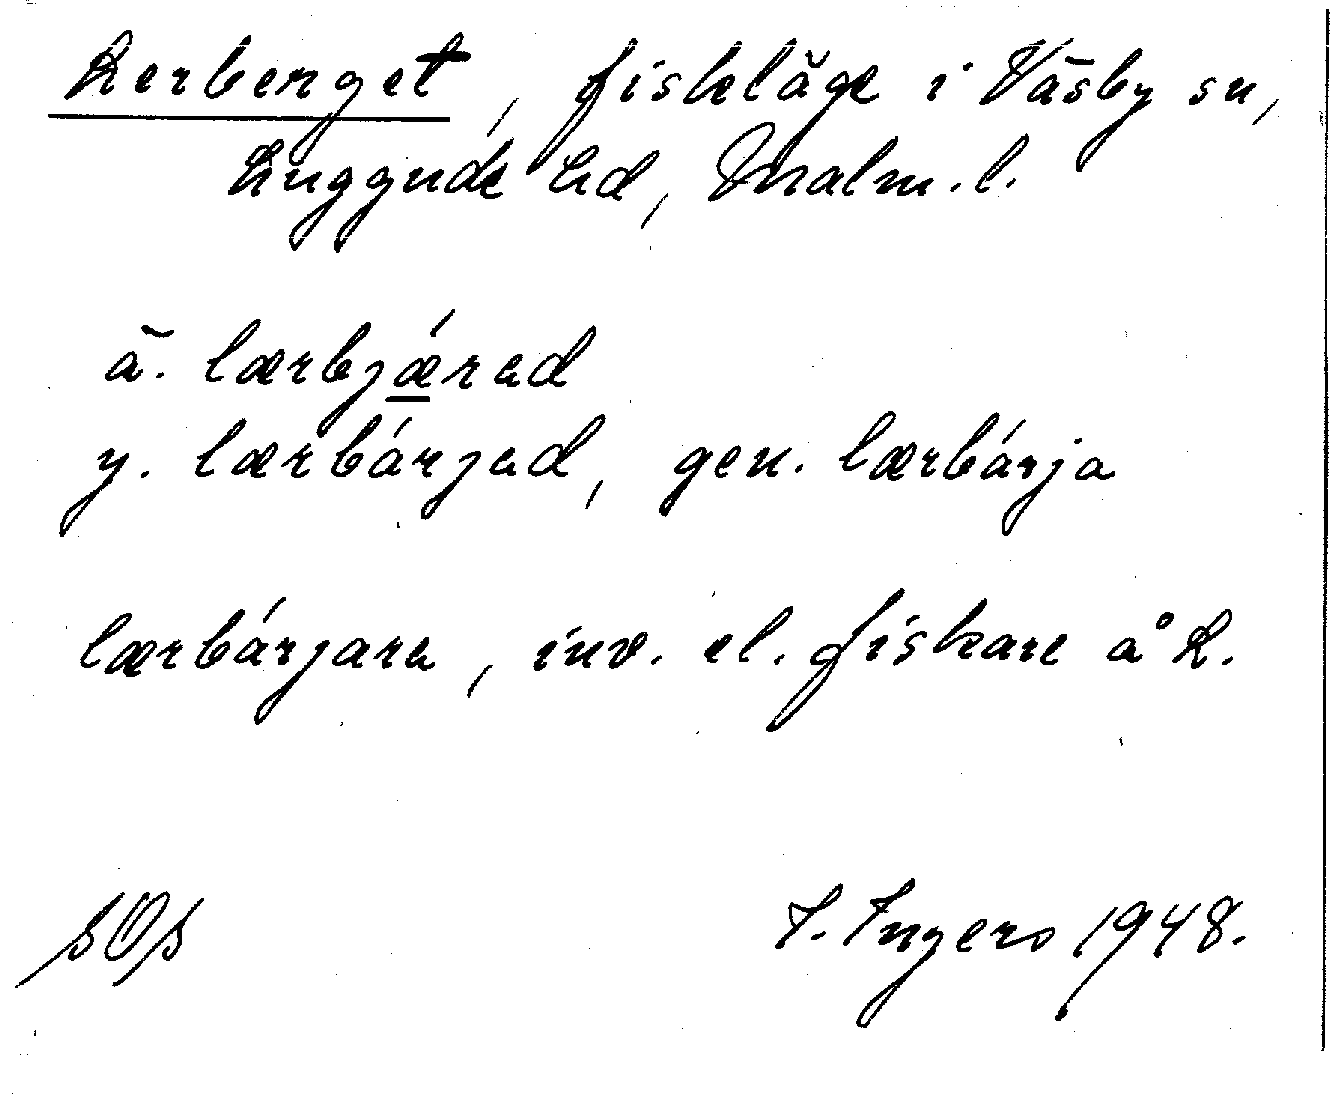 Lerberget, fiskeläge i Väsby sn,
Luggude hd, Malm.l.
ä. lærbjǽred
y. lærbárjed, gen. lærbárja
lærbárjara, inv. el. fiskare å L.
SOS
I. Ingers 1948.